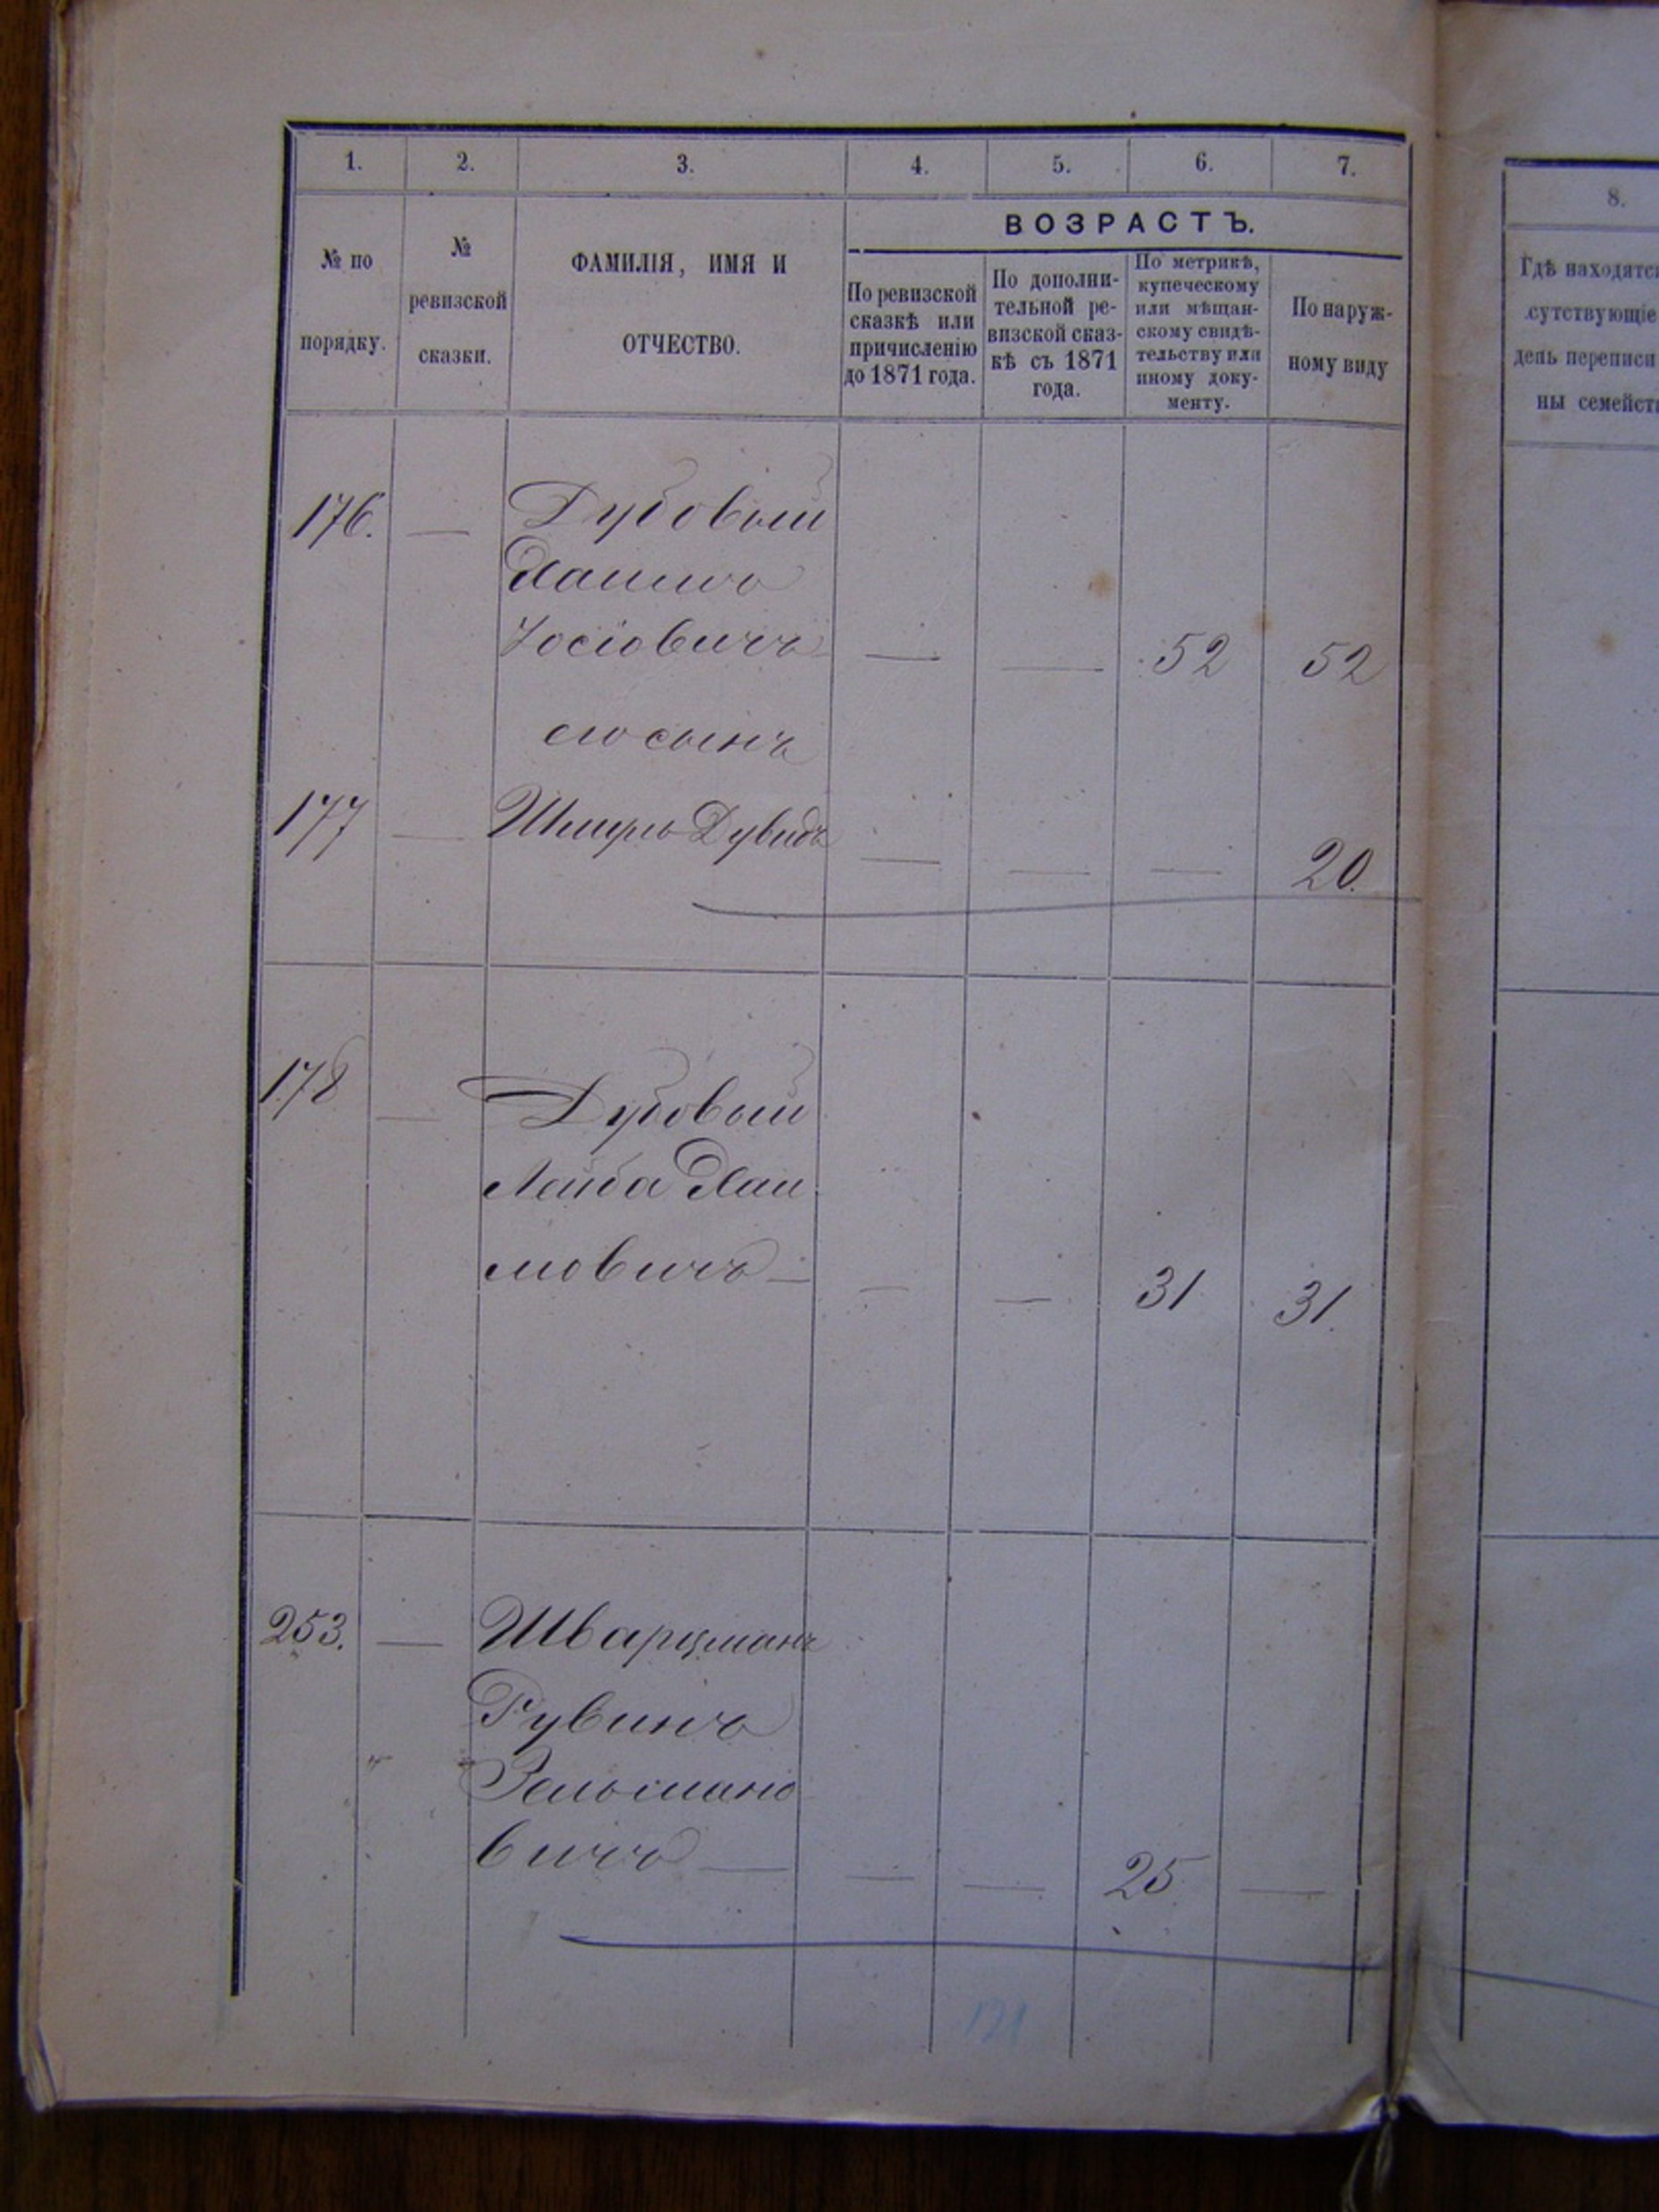 1. 2. 3. 4. 5. 6. 7.
№ по порядку.
№ ревизской сказки.
ФАМИЛІЯ, ИМЯ И
ОТЧЕСТВО.
ВОЗРАСТЪ.
По ревизской
сказкѣ или
причисленію
до 1871 года.
По дополни-
тельной ре-
визской сказ-
кѣ съ 1871
года.
По метрикѣ,
купеческому
или мѣщан-
скому свидѣ-
тельству или
иному доку-
менту.
По наруж-
ному виду
176. — Дубовый
Хаимъ
Іосіовичъ — — 52 52
его сынъ
177 — Шмуль Дувидъ — — — 20.
178 — Дубовый
Лейба Хаи
мовичъ — — — 31 31.
253. — Шварцманъ
Рувинъ
Зельмано
вичъ — — — 25 —
121
8.
Гдѣ находятся
сутствующіе
день переписи
ны семейств